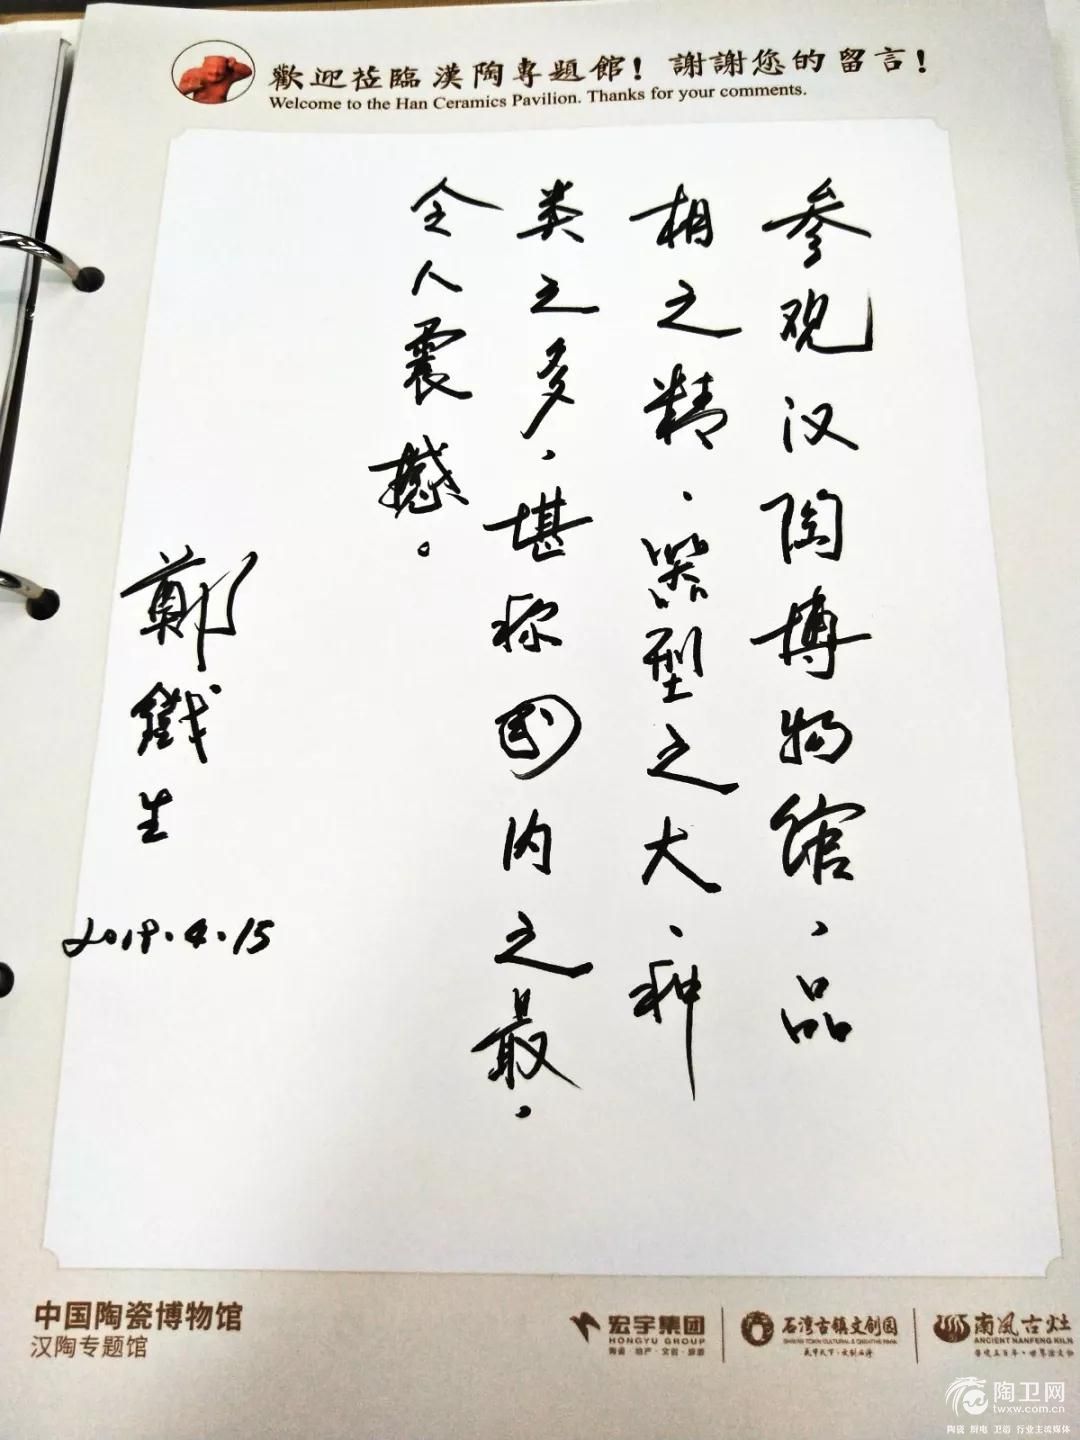 歡迎蒞臨漢陶專題館！謝謝您的留言！
Welcome to the Han Ceramics Pavilion. Thanks for your comments.
参观汉陶博物馆，品
相之精、器型之大、种
类之多，堪称国内之最，
令人震撼。
鄭鐵生
2019.4.15
中国陶瓷博物馆
汉陶专题馆
宏宇集团
HONGYU GROUP
陶瓷·地产·文创·旅游
石湾古镇文创园
南风古灶
ANCIENT NANFENG KILN
陶卫网
twxw.com.cn
陶瓷 厨电 卫浴 行业主流媒体